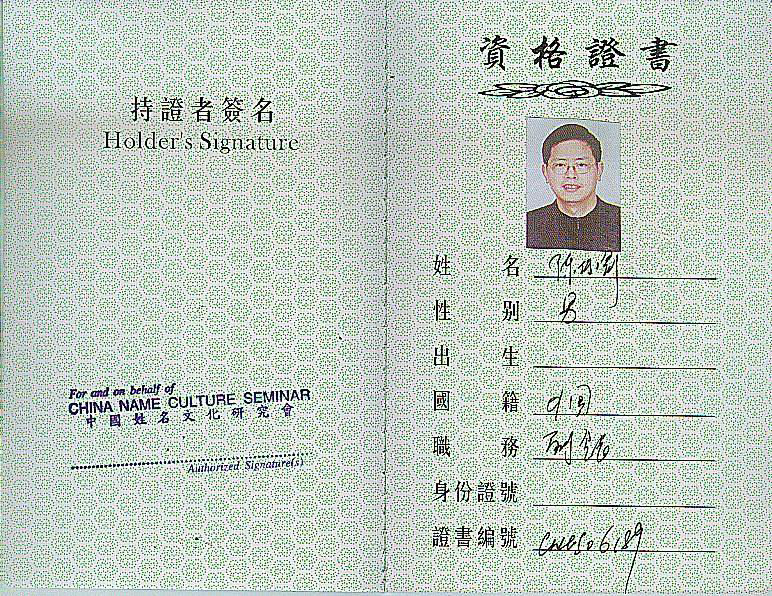 持證者簽名
Holder's Signature
For and on behalf of
CHINA NAME CULTURE SEMINAR
中國姓名文化研究會
Authorized Signature(s)
資格證書
姓名
性别 男
出生
國籍 中国
職務
身份證號
證書编號